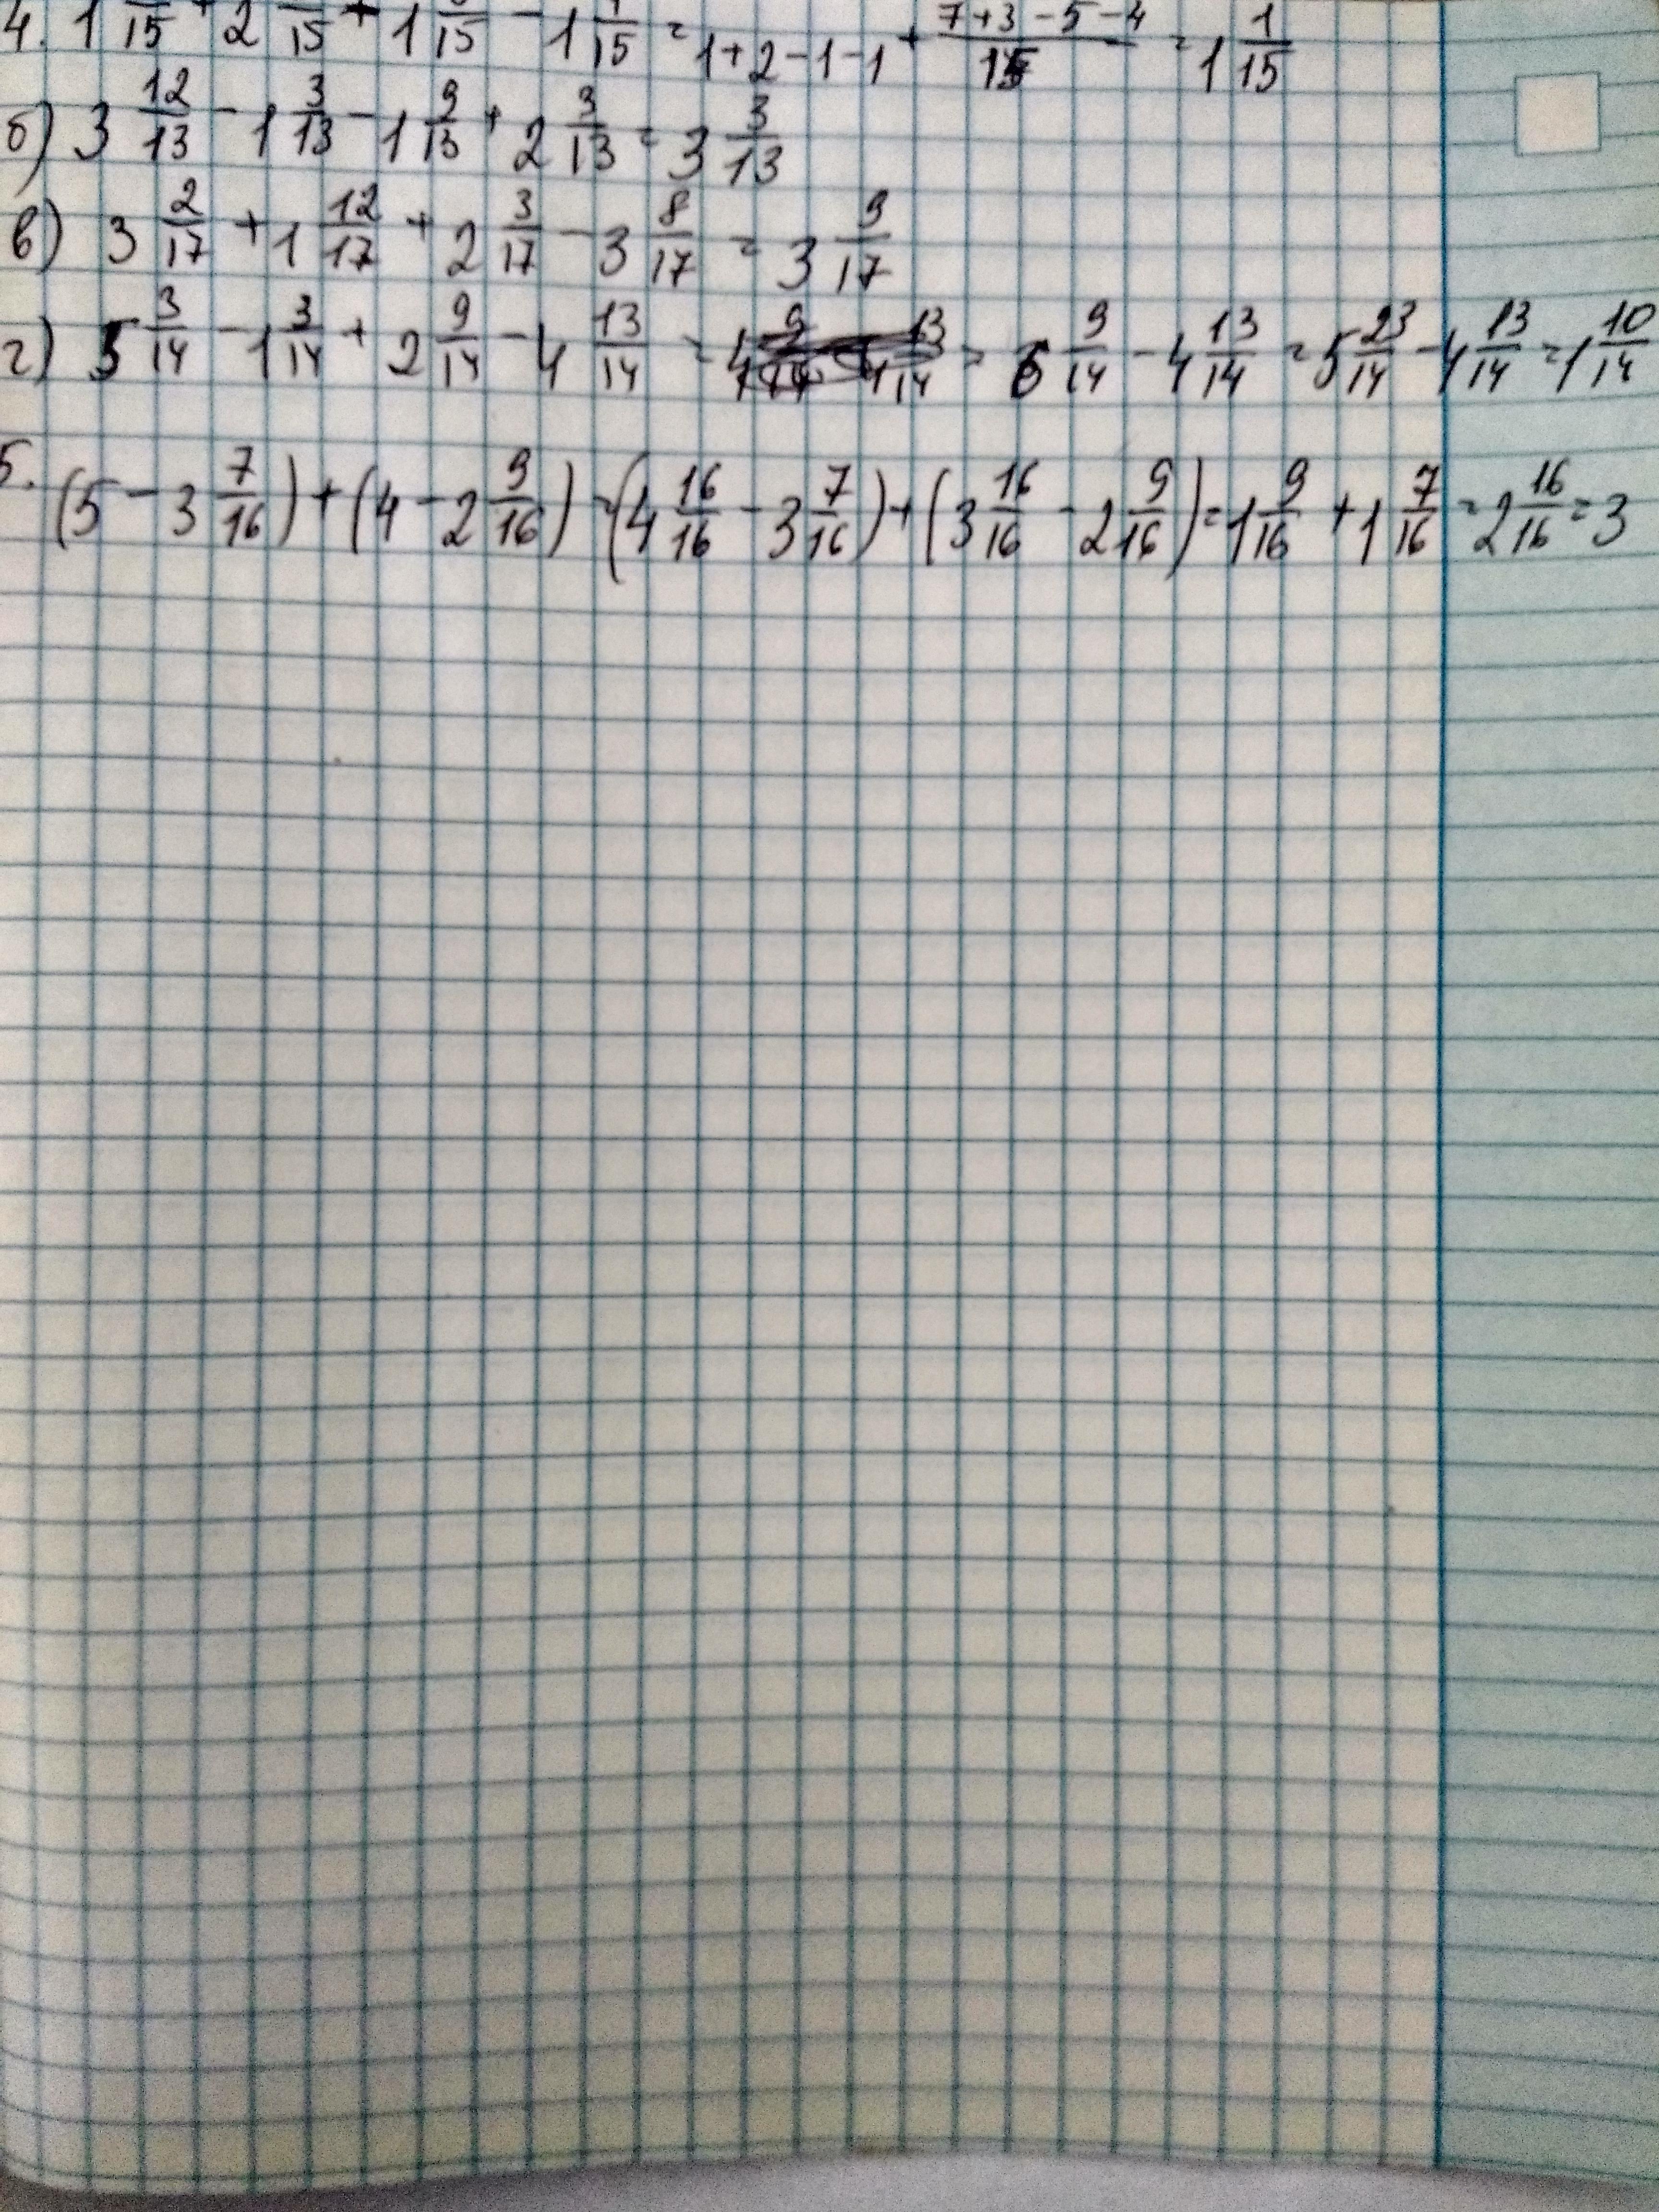 4. 1 /15 + 2 /15 + 1 /15 - 1 /15 = 1+2-1-1 + (7+3-5-4)/15 = 1 1/15
б) 3 12/13 - 1 3/13 - 1 9/13 + 2 3/13 = 3 3/13
в) 3 2/17 + 1 12/17 + 2 3/17 - 3 8/17 = 3 9/17
г) 5 3/14 - 1 3/14 + 2 9/14 - 4 13/14 = = 6 9/14 - 4 13/14 = 5 23/14 - 4 13/14 = 1 10/14
5. (5 - 3 7/16) + (4 - 2 9/16) = (4 16/16 - 3 7/16) + (3 16/16 - 2 9/16) = 1 9/16 + 1 7/16 = 2 16/16 = 3